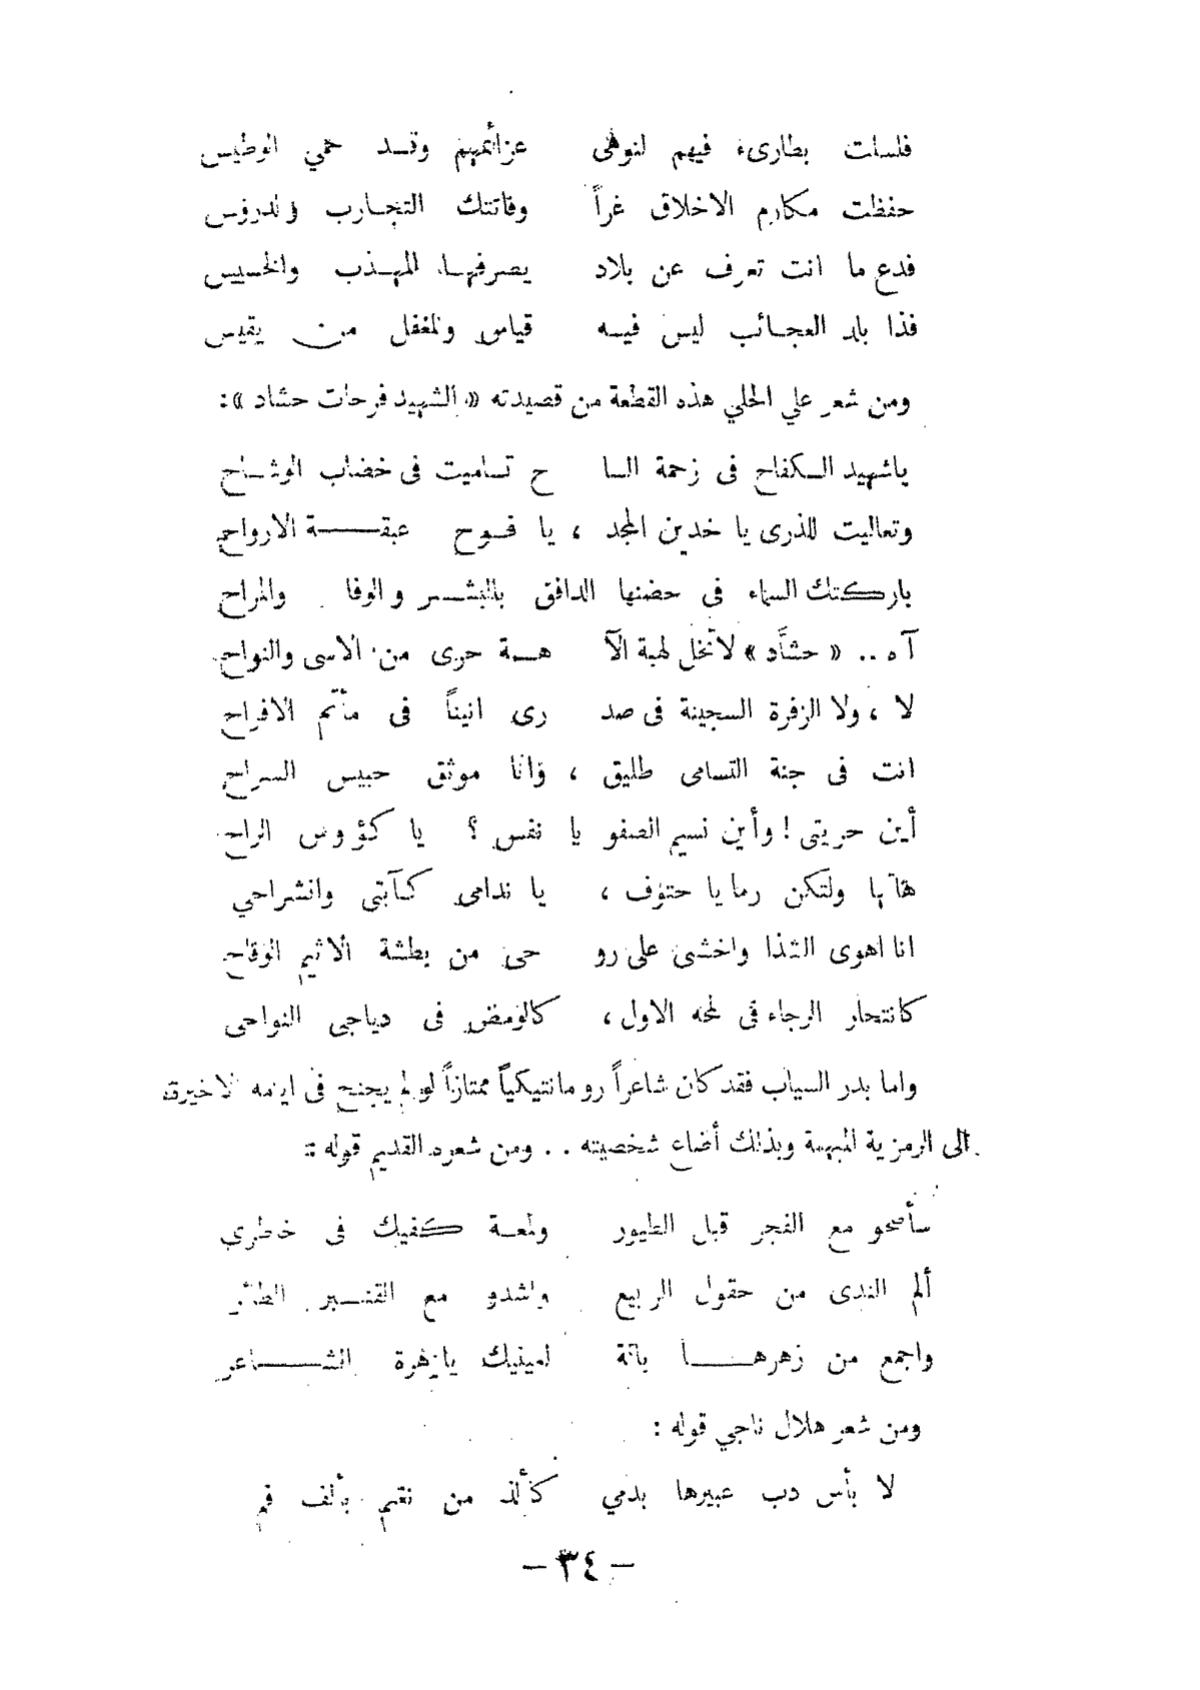 فلست بطارىء فيهم لنوهى عزائمهم وقد حمي الوطيس
حفظت مكارم الاخلاق غراً وفاتتك التجارب والدروس
فدع ما انت تعرف عن بلاد يصرفها المهذب والخسيس
فذا بلد العجائب ليس فيه قياس والمغفل من يقيس
ومن شعر علي الحلي هذه القطعة من قصيدته « الشهيد فرحات حشاد » :
ياشهيد الكفاح فى زحمة السا ح تساميت فى خضاب الوشاح
وتعاليت للذرى يا خدين المجد ، يا فوح عبقة الارواح
باركتك السماء فى حضنها الدافق بالبشر والوفا والمراح
آه .. « حشَّاد » لاتخل لهبة الآ هة حرى من الاسى والنواح
لا ، ولا الزفرة السجينة فى صد رى انيناً فى مأتم الافراح
انت فى جنة التسامى طليق ، وانا موثق حبيس السراح
أين حريتى ! وأين نسيم الصفو يا نفس ؟ يا كؤوس الراح
هاتها ولتكن رمايا حتوف ، يا ندامى كآبتى وانشراحي
انا اهوى الشذا واخشى على رو حى من بطشة الاثيم الوقاح
كانتحار الرجاء فى لمحه الاول ، كالومض فى دياجى النواحى
واما بدر السياب فقد كان شاعراً رومانتيكياً ممتازاً لو لم يجنح فى ايامه الاخيرة
الى الرمزية المبهمة وبذلك أضاع شخصيته .. ومن شعره القديم قوله :
سأصحو مع الفجر قبل الطيور ولمعة كفيك فى خاطرى
ألم الندى من حقول الربيع واشدو مع القنبر الطائر
واجمع من زهرها باقة لعينيك يازهرة الشاعر
ومن شعر هلال ناجي قوله :
لا بأس دب عبيرها بدمي كألذ من نغم بألف فم
- ٣٤ -